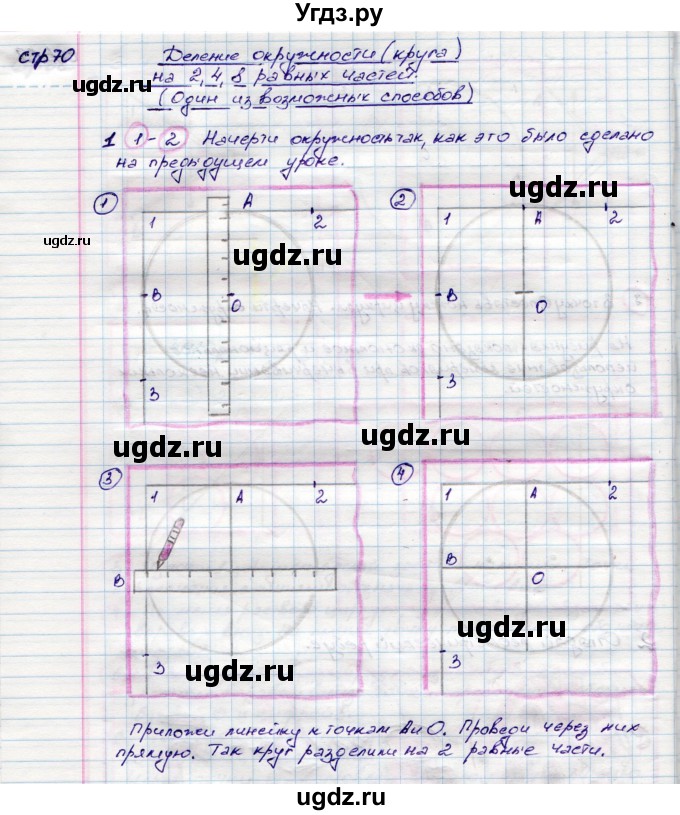 Угдз.ру
стр70
Деление окружности (круга)
на 2, 4, 8 равных частей.
(Один из возможных способов)
1 1-2 Начерти окружность так, как это было сделано
на предыдущем уроке.
1
1 A 2
B O
3
2
1 A 2
B O
3
3
1 A 2
B
3
4
1 A 2
B
O
3
Приложи линейку к точкам А и О. Проведи через них
прямую. Так круг разделили на 2 равные части.
ugdz.ru
ugdz.ru
ugdz.ru
ugdz.ru
ugdz.ru
ugdz.ru
ugdz.ru
ugdz.ru
ugdz.ru
ugdz.ru
ugdz.ru